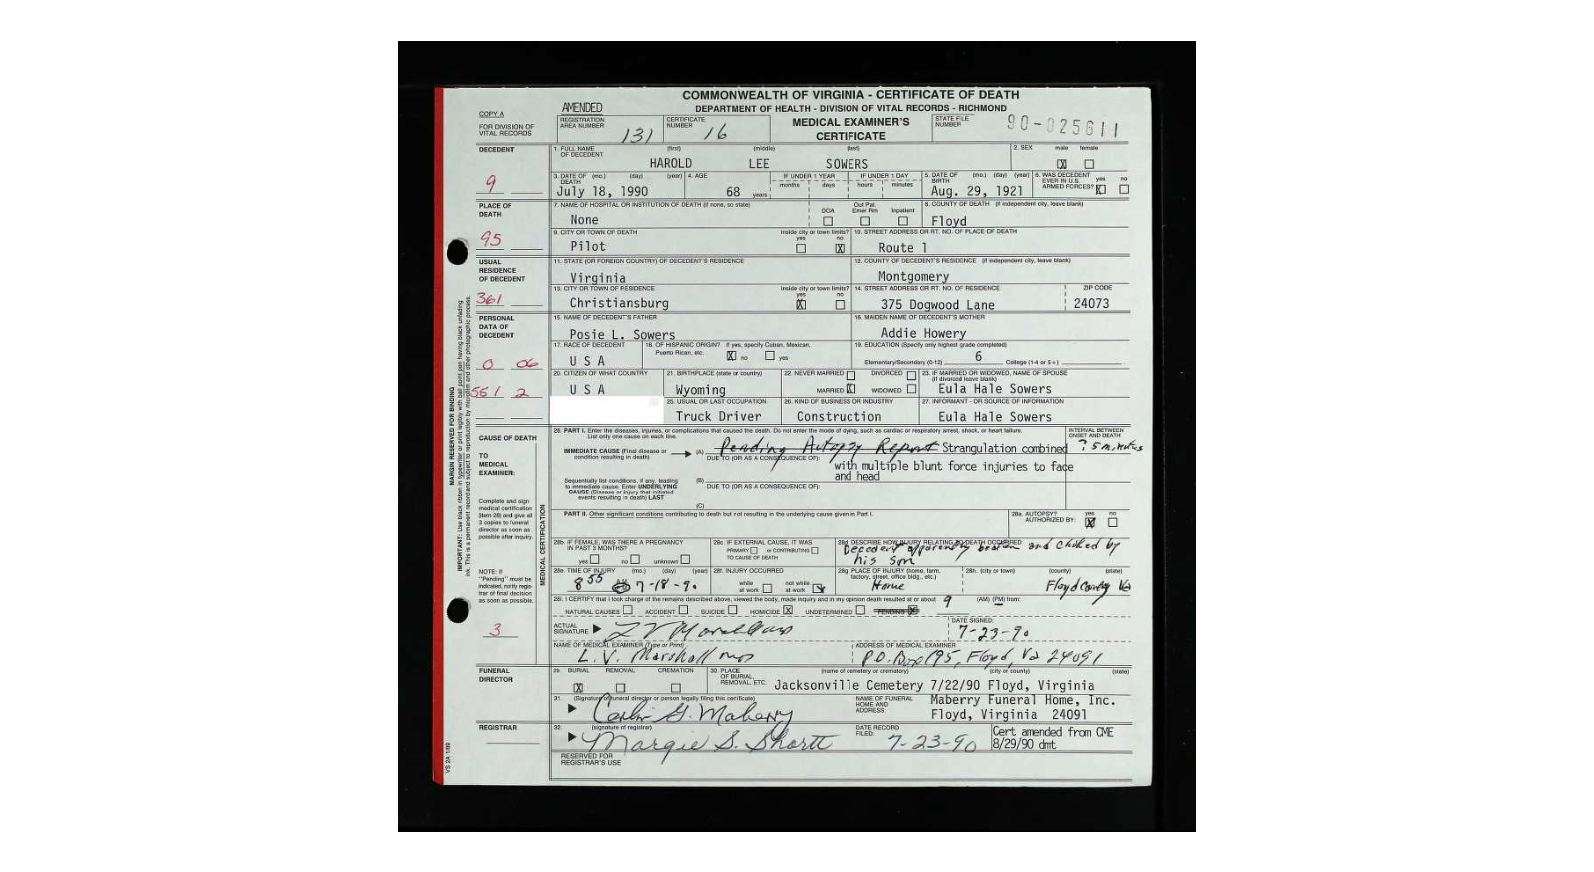 COMMONWEALTH OF VIRGINIA - CERTIFICATE OF DEATH
DEPARTMENT OF HEALTH - DIVISION OF VITAL RECORDS - RICHMOND
MEDICAL EXAMINER'S
CERTIFICATE
COPY A
FOR DIVISION OF
VITAL RECORDS
AMENDED
REGISTRATION
AREA NUMBER 131
CERTIFICATE
NUMBER 16
STATE FILE
NUMBER 90-025611
DECEDENT
9
1. FULL NAME (first) (middle) (last)
OF DECEDENT
HAROLD LEE SOWERS
2. SEX male female
X
3. DATE OF (mo.) (day) (year)
DEATH
July 18, 1990
4. AGE
68 years
IF UNDER 1 YEAR
months days
IF UNDER 1 DAY
hours minutes
5. DATE OF (mo.) (day) (year)
BIRTH
Aug. 29, 1921
6. WAS DECEDENT
EVER IN U.S.
ARMED FORCES? yes no
X
PLACE OF
DEATH
95
7. NAME OF HOSPITAL OR INSTITUTION OF DEATH (if none, so state)
None
DOA
Out Pat.
Emer Rm
Inpatient
8. COUNTY OF DEATH (if independent city, leave blank)
Floyd
9. CITY OR TOWN OF DEATH
Pilot
inside city or town limits?
yes no
X
10. STREET ADDRESS OR RT. NO. OF PLACE OF DEATH
Route 1
USUAL
RESIDENCE
OF DECEDENT
361
11. STATE (OR FOREIGN COUNTRY) OF DECEDENT'S RESIDENCE
Virginia
12. COUNTY OF DECEDENT'S RESIDENCE (if independent city, leave blank)
Montgomery
13. CITY OR TOWN OF RESIDENCE
Christiansburg
inside city or town limits?
yes no
X
14. STREET ADDRESS OR RT. NO. OF RESIDENCE
375 Dogwood Lane
ZIP CODE
24073
PERSONAL
DATA OF
DECEDENT
0 06
551 2
15. NAME OF DECEDENT'S FATHER
Posie L. Sowers
16. MAIDEN NAME OF DECEDENT'S MOTHER
Addie Howery
17. RACE OF DECEDENT
U S A
18. OF HISPANIC ORIGIN? If yes, specify Cuban, Mexican,
Puerto Rican, etc. X no yes
19. EDUCATION (Specify only highest grade completed)
Elementary/Secondary (0-12) 6 College (1-4 or 5+)
20. CITIZEN OF WHAT COUNTRY
U S A
21. BIRTHPLACE (state or country)
Wyoming
22. NEVER MARRIED DIVORCED
MARRIED X WIDOWED
23. IF MARRIED OR WIDOWED, NAME OF SPOUSE
(if divorced leave blank)
Eula Hale Sowers
25. USUAL OR LAST OCCUPATION
Truck Driver
26. KIND OF BUSINESS OR INDUSTRY
Construction
27. INFORMANT - OR SOURCE OF INFORMATION
Eula Hale Sowers
CAUSE OF DEATH
TO
MEDICAL
EXAMINER:
Complete and sign
medical certification
(item 28) and give all
3 copies to funeral
director as soon as
possible after inquiry.
NOTE: If
"Pending" must be
indicated, notify regis-
trar of final decision
as soon as possible.
3
MEDICAL CERTIFICATION
28. PART I. Enter the diseases, injuries, or complications that caused the death. Do not enter the mode of dying, such as cardiac or respiratory arrest, shock, or heart failure.
List only one cause on each line.
INTERVAL BETWEEN
ONSET AND DEATH
IMMEDIATE CAUSE (Final disease or
condition resulting in death)
(A) Pending Autopsy Report Strangulation combined ? 5 minutes
DUE TO (OR AS A CONSEQUENCE OF):
with multiple blunt force injuries to face
and head
Sequentially list conditions, if any, leading
to immediate cause. Enter UNDERLYING
CAUSE (Disease or injury that initiated
events resulting in death) LAST
(B)
DUE TO (OR AS A CONSEQUENCE OF):
(C)
PART II. Other significant conditions contributing to death but not resulting in the underlying cause given in Part I.
28a. AUTOPSY?
AUTHORIZED BY: yes no
X
28b. IF FEMALE, WAS THERE A PREGNANCY
IN PAST 3 MONTHS?
yes no unknown
28c. IF EXTERNAL CAUSE, IT WAS
PRIMARY or CONTRIBUTING
TO CAUSE OF DEATH
28d. DESCRIBE HOW INJURY RELATING TO DEATH OCCURRED
Decedent apparently beaten and choked by
his son
28e. TIME OF INJURY (mo.) (day) (year)
8 55 7-18-90
28f. INJURY OCCURRED
while
at work
not while
at work
28g PLACE OF INJURY (home, farm,
factory, street, office bldg., etc.)
Home
28h. (city or town) (county) (state)
Floyd County Va
29. I CERTIFY that I took charge of the remains described above, viewed the body, made inquiry and in my opinion death resulted at or about 9 (AM) (PM) from:
NATURAL CAUSES ACCIDENT SUICIDE HOMICIDE X UNDETERMINED PENDING X
ACTUAL
SIGNATURE L V Marshall MD
DATE SIGNED:
7-23-90
NAME OF MEDICAL EXAMINER (Type or Print)
L.V. Marshall MD
ADDRESS OF MEDICAL EXAMINER
P.O. Box 195, Floyd, Va 24091
FUNERAL
DIRECTOR
BURIAL REMOVAL CREMATION
X
30. PLACE
OF BURIAL,
REMOVAL, ETC.
(name of cemetery or crematory) (city or county) (state)
Jacksonville Cemetery 7/22/90 Floyd, Virginia
31. (Signature of funeral director or person legally filing this certificate)
Corbin G. Maberry
NAME OF FUNERAL
HOME AND
ADDRESS:
Maberry Funeral Home, Inc.
Floyd, Virginia 24091
REGISTRAR
32. (signature of registrar)
Margie S. Shortt
DATE RECORD
FILED:
7-23-90
Cert amended from CME
8/29/90 dmt
RESERVED FOR
REGISTRAR'S USE
VS 2A 1/89
MARGIN RESERVED FOR BINDING